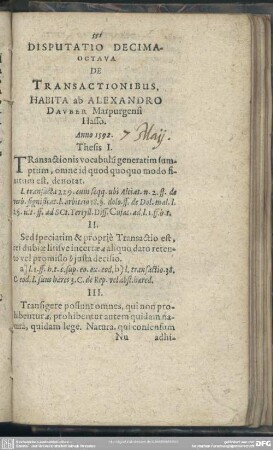 DISPUTATIO DECIMA-
OCTAVA
DE
TRANSACTIONIBUS,
HABITA ab ALEXANDRO
DAUBER Marpurgensi
Hasso.
Anno 1592. 7 Maij.
Thesis I.
TRansactionis vocabulũ generatim sum-
ptum, omne id quod quoquo modo fi-
nitum est, denotat.
l. transacta 229. eum seqq. ubi Alciat. n. 2. ff. de
verb. significat. l. arbitrio 18. §. dolo. ff. de Dol. mal. l.
II.
Sed speciatim & propriè Transactio est,
rei dubiæ litisve incertæ aliquo dato reten-
to vel promisso b justa decisio.
a) l. 1. ff. h. t. l. sup. eo. ex. eod, b) l. transactio. 38.
C. eod. l. suus heres 3. C. de Rep. vel abst. hæred.
III.
Transigere possunt omnes, qui non pro-
hibentur a, prohibentur autem quidam na-
tura, quidam lege. Natura, qui consensum
Nu adhi-